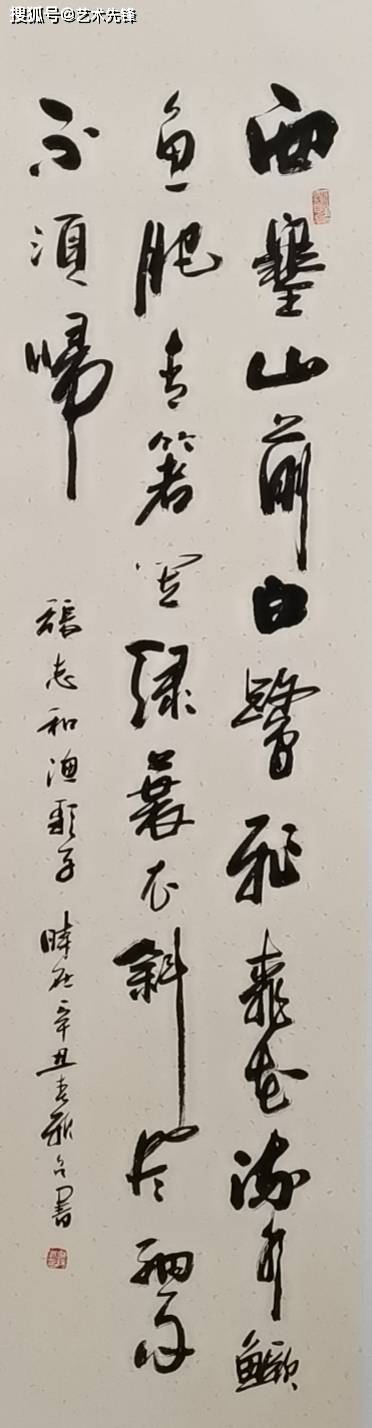 搜狐号@艺术先锋
西塞山前白鷺飛桃花流水鱖
魚肥青箬笠綠蓑衣斜風細雨
不須歸
張志和漁歌子 時在辛丑春 書